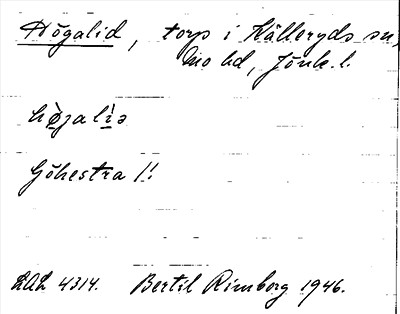 Högalid, torp i Källeryds sn,
Mo hd, Jönk. l.
høgalis
Göhestra !!
LAL 4314. Bertil Rimborg 1946.